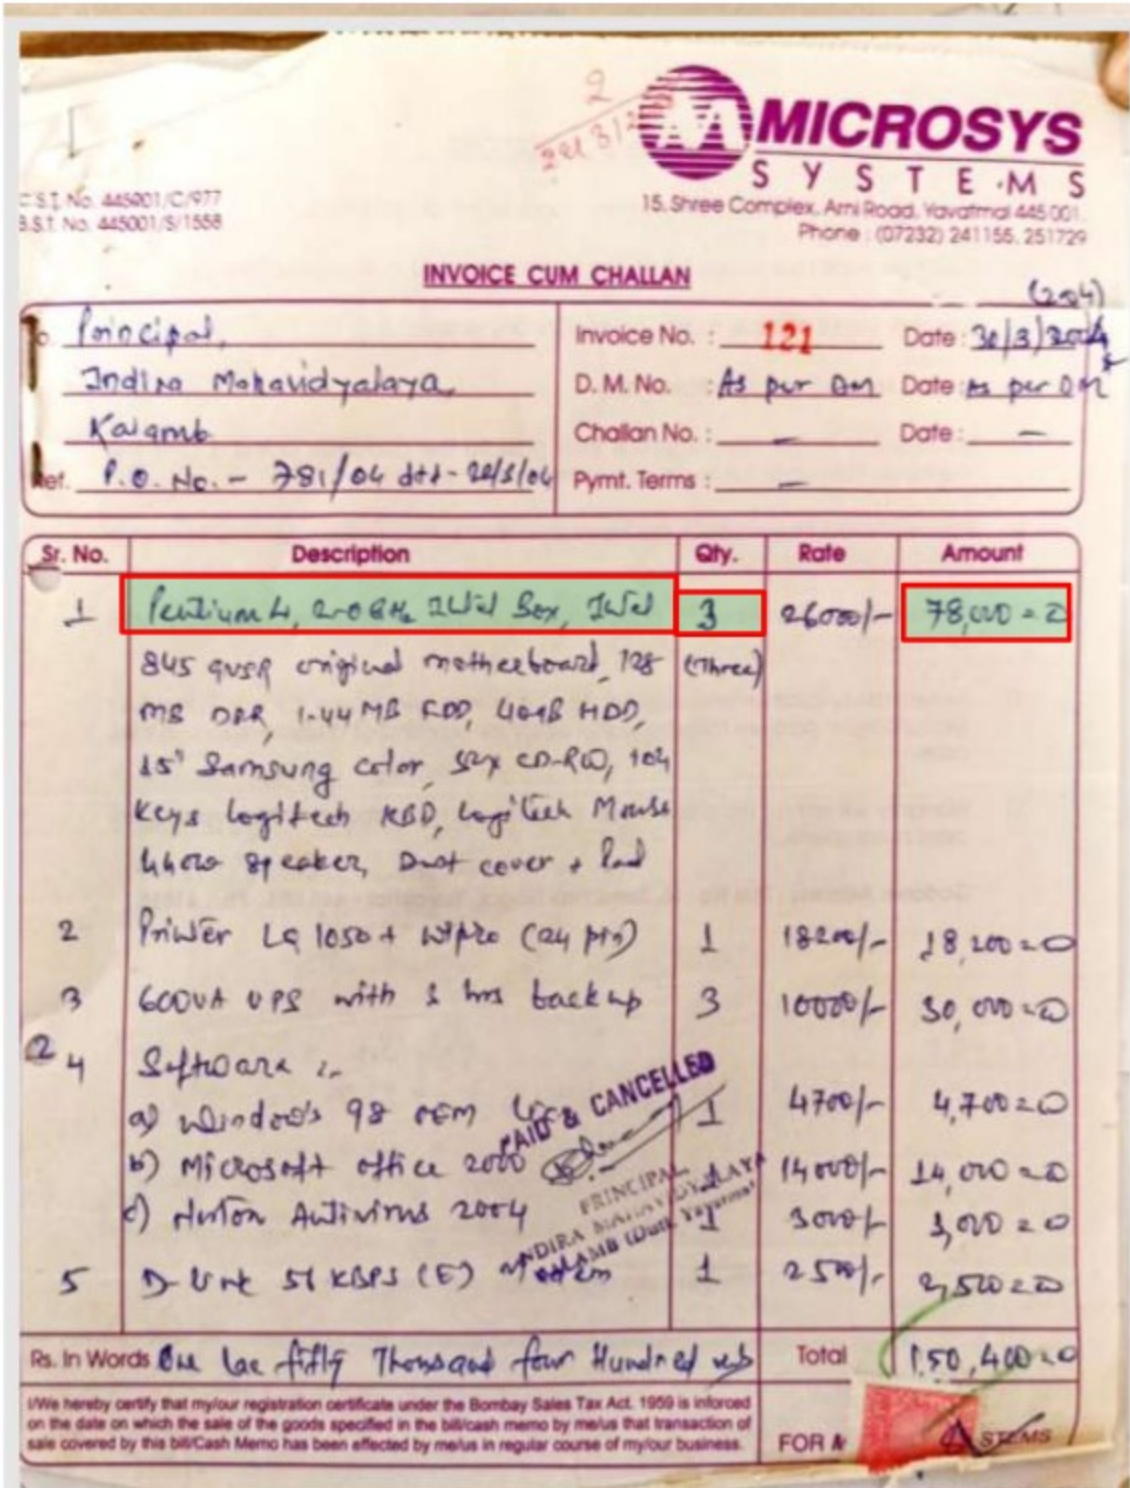 2
MICROSYS
SYSTEMS
C.S.T. No. 445001/C/977
B.S.T. No. 445001/S/1558
15, Shree Complex, Arni Road, Yavatmal 445 001.
Phone : (07232) 241155, 251729
INVOICE CUM CHALLAN
(204)
To Principal,
Indira Mahavidyalaya,
Kalamb
Ref. P.O. No. - 781/04 dtd -
Invoice No. : 121 Date : 30/3/2004
D. M. No. : As per DM Date : As per DM
Challan No. : — Date : —
Pymt. Terms : —
Sr. No. Description Qty. Rate Amount
1 Pentium 4, 2.0 GHz Intel Box, Intel 3 26000/- 78,000=0
845 original motherboard, 128 (Three)
MB DDR, 1.44 MB FDD, 40GB HDD,
15" Samsung color, 52x CD-RW, 104
Keys Logitech KBD, Logitech Mouse
speaker, Dust cover + Pad
2 Printer LQ 1050+ Wipro (24 pin) 1 18200/- 18,200=0
3 600VA UPS with hrs backup 3 10000/- 30,000=0
2 4 Software :-
a) Windows 98 OEM 1 4700/- 4,700=0
b) Microsoft office 2000 14000/- 14,000=0
c) Norton Antivirus 2004 1 3000/- 3,000=0
5 D-Link 56 KBPS (E) Modem 1 2500/- 2,500=0
PAID & CANCELLED
PRINCIPAL
INDIRA MAHAVIDYALAYA
KALAMB (Distt. Yavatmal)
Rs. In Words One lac fifty Thousand four Hundred Total 1,50,400=0
I/We hereby certify that my/our registration certificate under the Bombay Sales Tax Act. 1959 is inforced
on the date on which the sale of the goods specified in the bill/cash memo by me/us that transaction of
sale covered by this bill/Cash Memo has been effected by me/us in regular course of my/our business.
FOR STEMS